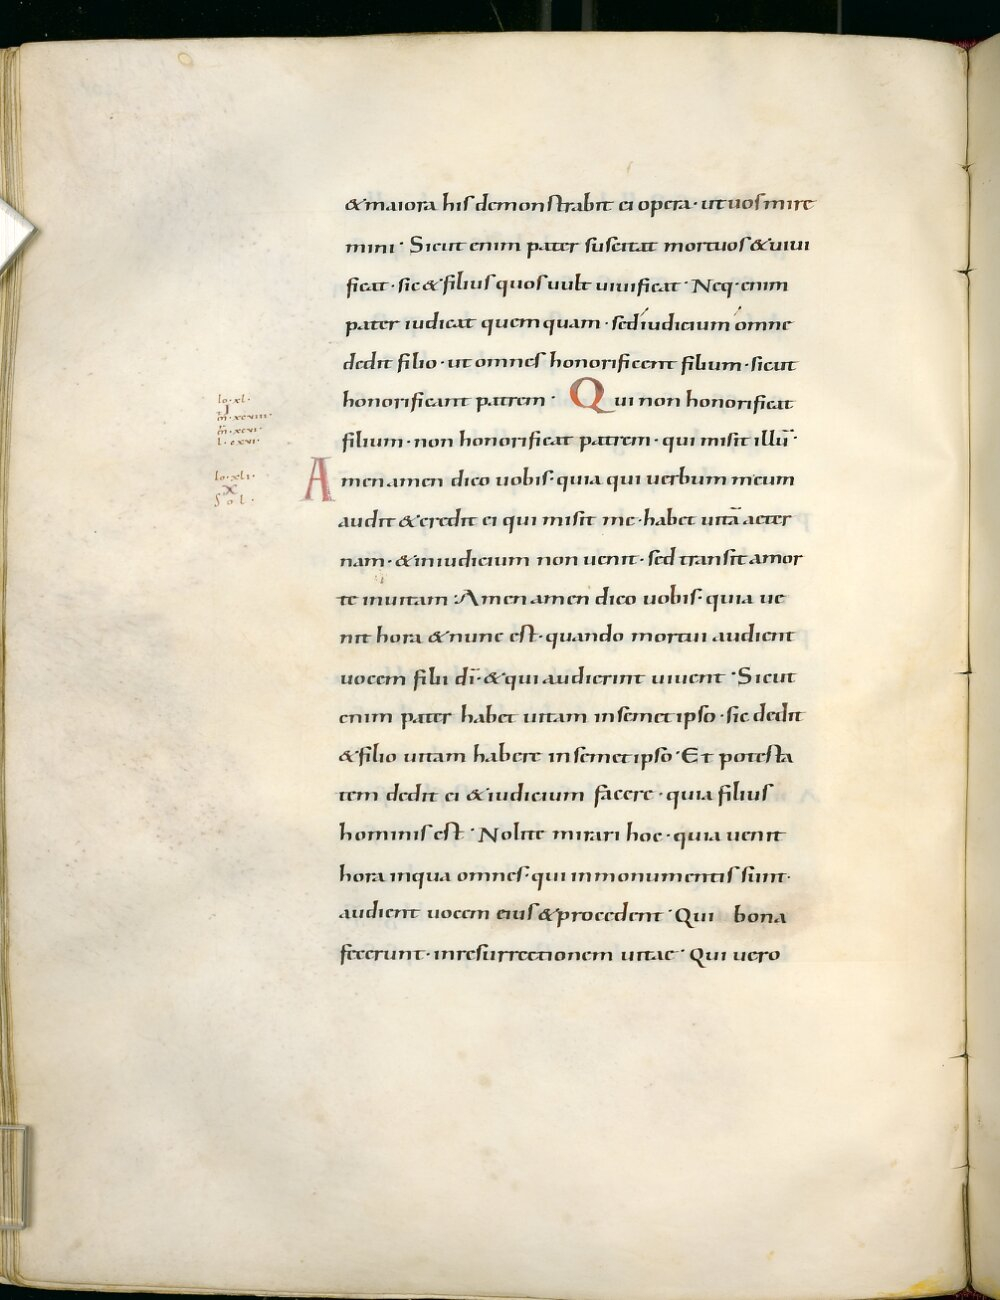 & maiora his demonstrabit ei opera · ut uos mire
mini · Sicut enim pater suscitat mortuos & uiui
ficat · sic & filius quos uult uiuificat · Neq· enim
pater iudicat quemquam · sed iudicium omne
dedit filio · ut omnes honorificent filium · sicut
lo · xl ·
honorificant patrem · Qui non honorificat
I
m̄ · xcviii ·
m̄ · xcvi ·
l · cxvi ·
filium · non honorificat patrem · qui misit illū ·
lo · xli ·
X
Amen amen dico uobis · quia qui uerbum meum
Sol ·
audit & credit ei qui misit me · habet uitā aeter
nam · & in iudicium non uenit · sed transit a mor
te in uitam · Amen amen dico uobis · quia ue
nit hora & nunc est · quando mortui audient
uocem filii dī · & qui audierint uiuent · Sicut
enim pater habet uitam in semet ipso · sic dedit
& filio uitam habere in semet ipso · Et potesta
tem dedit ei & iudicium facere · quia filius
hominis est · Nolite mirari hoc · quia uenit
hora in qua omnes · qui in monumentis sunt ·
audient uocem eius & procedent · Qui bona
fecerunt · in resurrectionem uitae · Qui uero